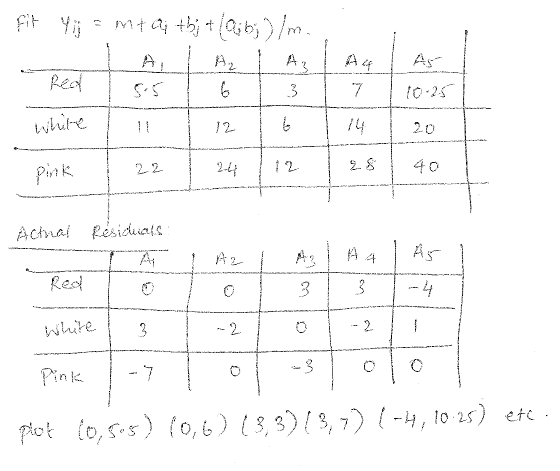 Fit Yij = m + ai + bj + (aibj)/m.
A1 A2 A3 A4 A5
Red 5.5 6 3 7 10.25
White 11 12 6 14 20
Pink 22 24 12 28 40
Actual Residuals:
A1 A2 A3 A4 A5
Red 0 0 3 3 -4
White 3 -2 0 -2 1
Pink -7 0 -3 0 0
plot (0,5.5) (0,6) (3,3) (3,7) (-4, 10.25) etc.